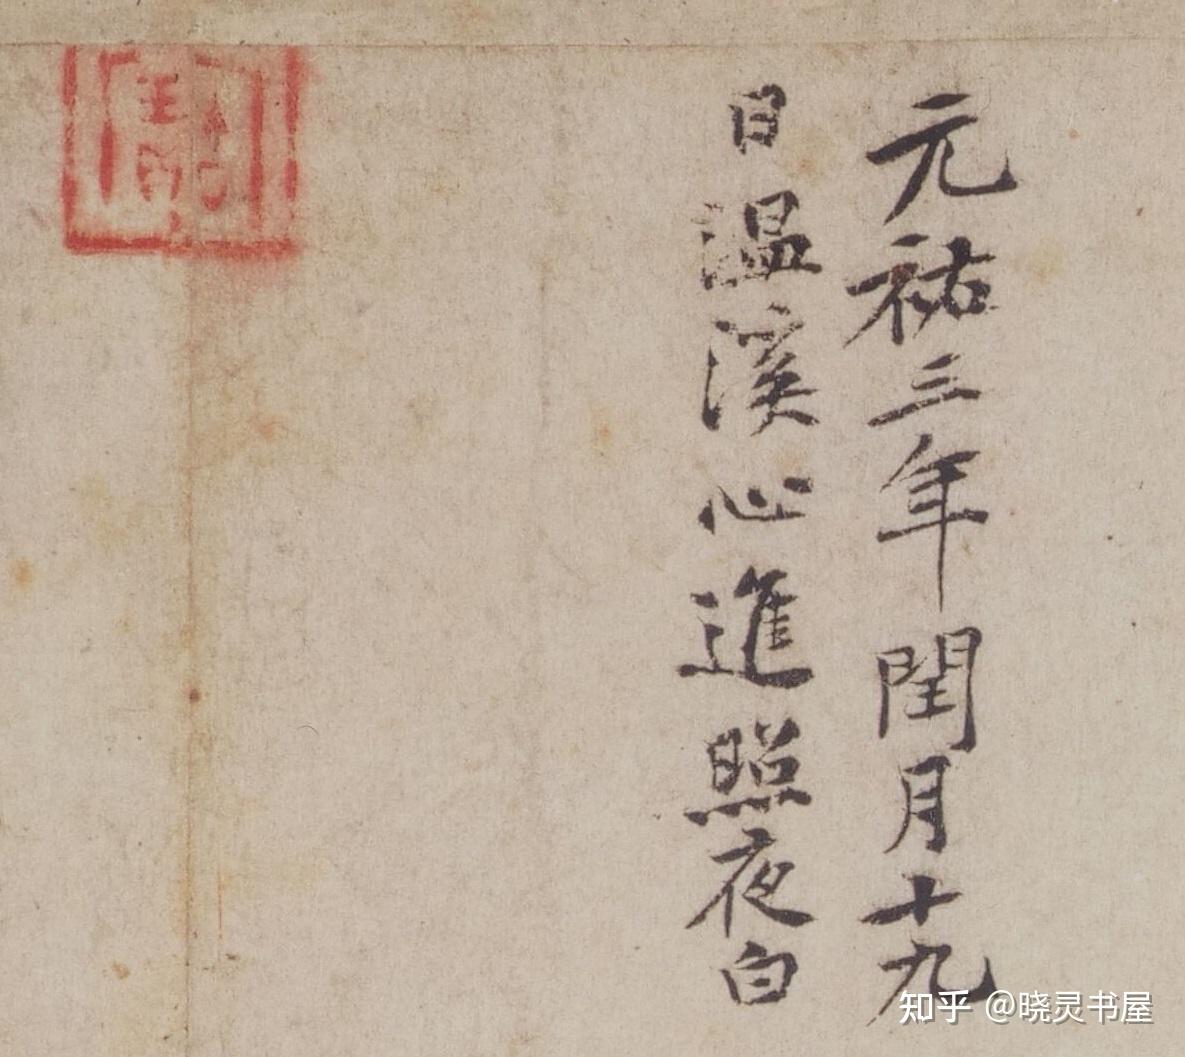 元祐三年閏月十九
日温溪心進照夜白
知乎 @晓灵书屋